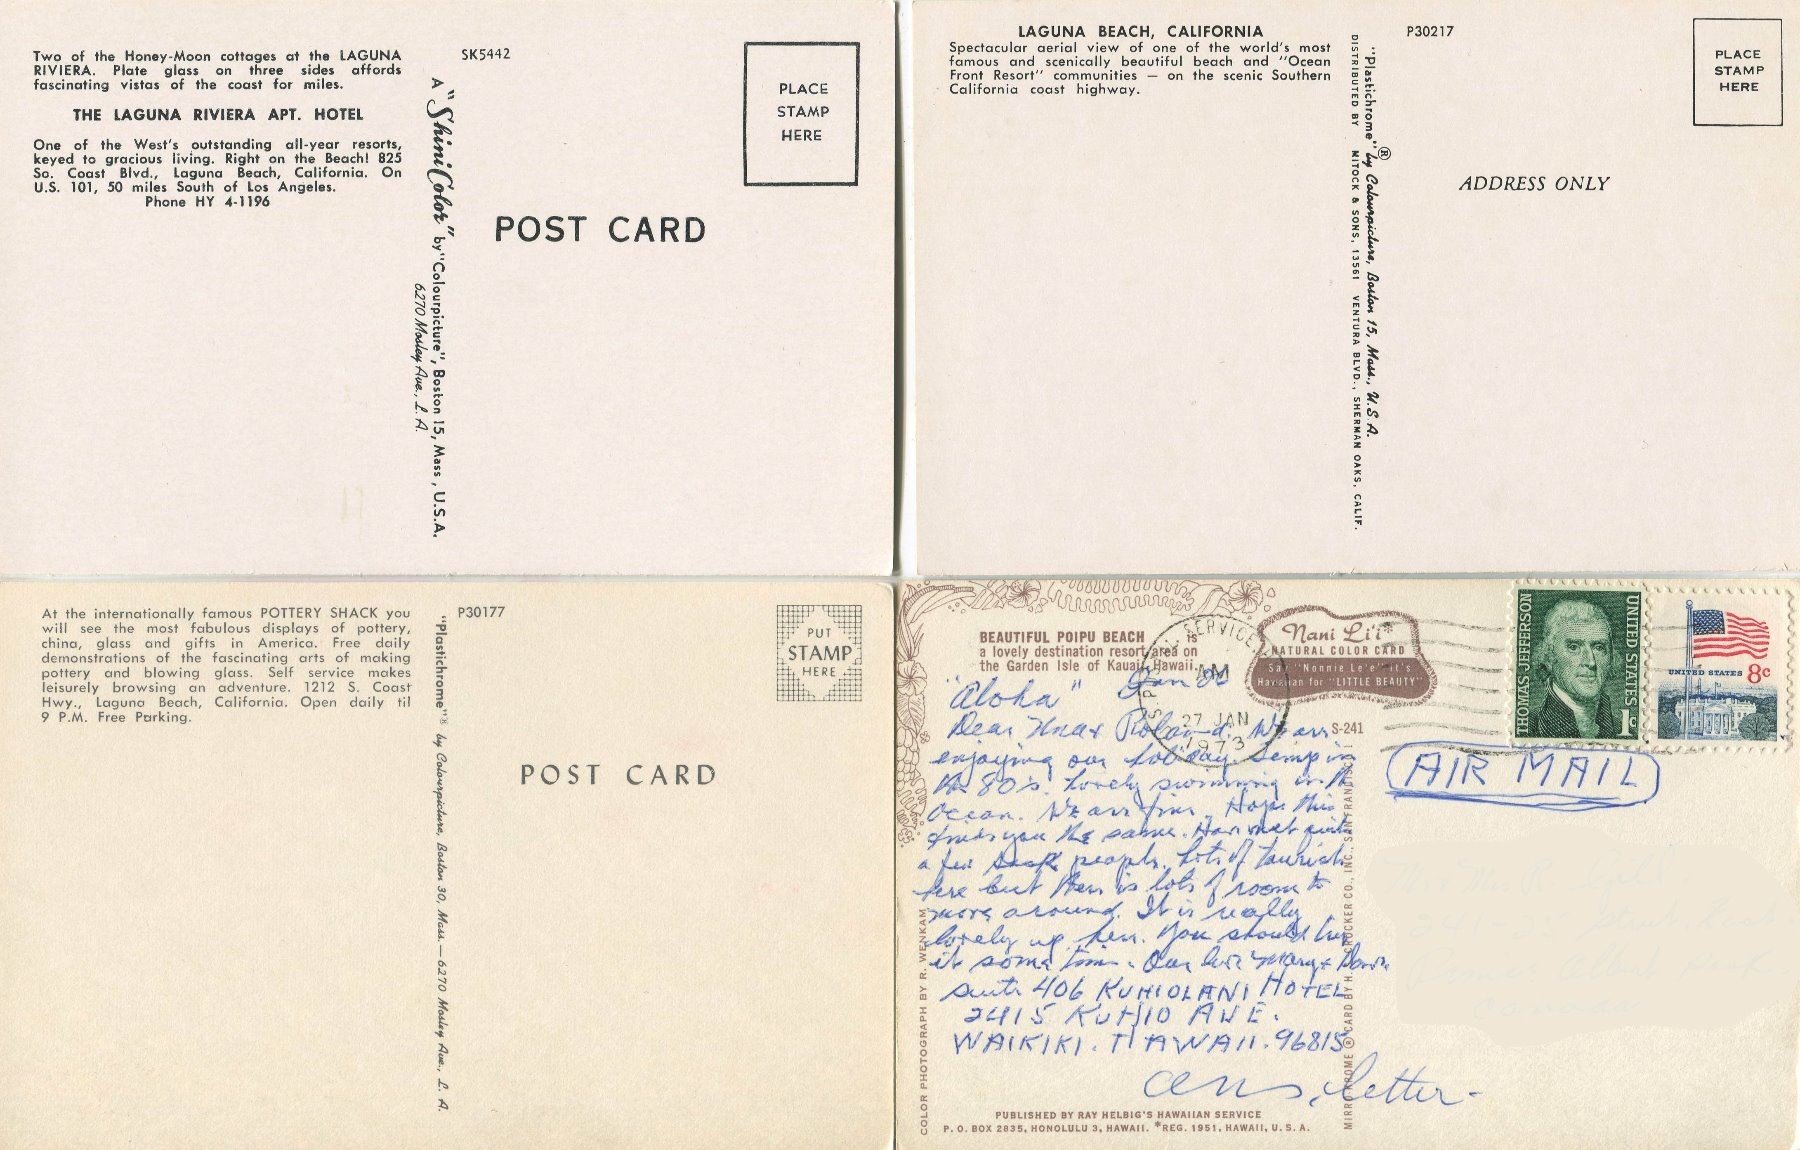 Two of the Honey-Moon cottages at the LAGUNA
RIVIERA. Plate glass on three sides affords
fascinating vistas of the coast for miles.
THE LAGUNA RIVIERA APT. HOTEL
One of the West's outstanding all-year resorts,
keyed to gracious living. Right on the Beach! 825
So. Coast Blvd., Laguna Beach, California. On
U.S. 101, 50 miles South of Los Angeles.
Phone HY 4-1196
SK5442
A "ShiniColor" by "Colourpicture", Boston 15, Mass., U.S.A.
6270 Mosley Ave., L. A.
PLACE
STAMP
HERE
POST CARD
LAGUNA BEACH, CALIFORNIA
Spectacular aerial view of one of the world's most
famous and scenically beautiful beach and "Ocean
Front Resort" communities — on the scenic Southern
California coast highway.
P30217
"Plastichrome"® by Colourpicture, Boston 15, Mass., U.S.A.
DISTRIBUTED BY MITOCK & SONS, 13561 VENTURA BLVD., SHERMAN OAKS, CALIF.
PLACE
STAMP
HERE
ADDRESS ONLY
At the internationally famous POTTERY SHACK you
will see the most fabulous displays of pottery,
china, glass and gifts in America. Free daily
demonstrations of the fascinating arts of making
pottery and blowing glass. Self service makes
leisurely browsing an adventure. 1212 S. Coast
Hwy., Laguna Beach, California. Open daily til
9 P.M. Free Parking.
P30177
"Plastichrome"® by Colourpicture, Boston 30, Mass. — 6270 Mosley Ave., L. A.
PUT
STAMP
HERE
POST CARD
BEAUTIFUL POIPU BEACH is
a lovely destination resort area on
the Garden Isle of Kauai, Hawaii.
Nani Li'i*
NATURAL COLOR CARD
Say "Nonnie Le'e" it's
Hawaiian for "LITTLE BEAUTY"
SERVICE
AM
27 JAN
1973
THOMAS JEFFERSON
UNITED STATES
1c
UNITED STATES 8c
S-241
AIR MAIL
"Aloha" Jan
Dear Roland. We are
enjoying our holiday. temp in
the 80's. Lovely swimming in the
Ocean. We are fine. Hope this
finds you the same. Have met quite
a few people. Lots of tourists
here but there is lots of room to
move around. It is really
lovely up here. You should try
it some time. Our love Mary +
suite 406 KUHIOLANI HOTEL
2415 KUHIO AVE.
WAIKIKI. HAWAII. 96815
ans. letter.
COLOR PHOTOGRAPH BY R. WENKAM
MIRRO-KROME ® CARD BY H. S. CROCKER CO., INC., SAN FRANCISCO 1
PUBLISHED BY RAY HELBIG'S HAWAIIAN SERVICE
P. O. BOX 2835, HONOLULU 3, HAWAII. *REG. 1951, HAWAII, U. S. A.